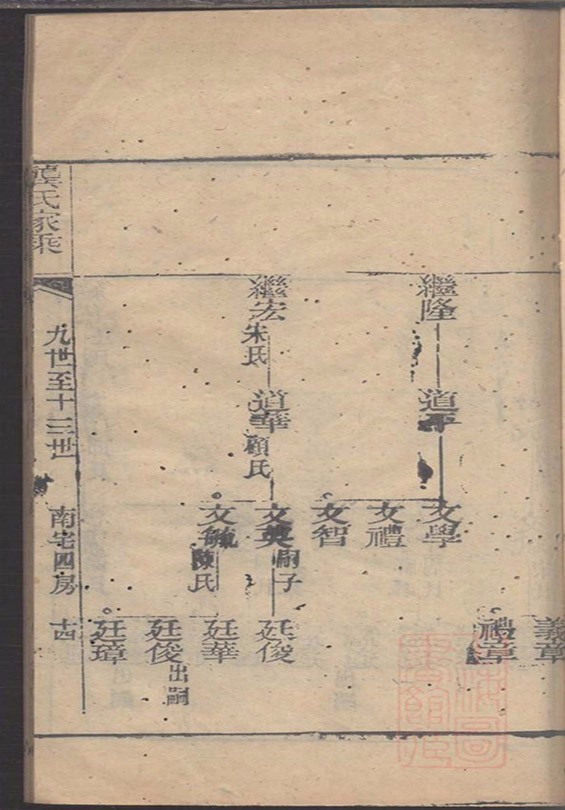 龔氏家乘
九世至十三世
南宅四房
十四
義章
禮章
繼隆
道平
文學
文禮
文智
繼宏
朱氏
道華
顧氏
文典
嗣子
廷俊
文
陳氏
廷華
廷俊
出嗣
廷璋